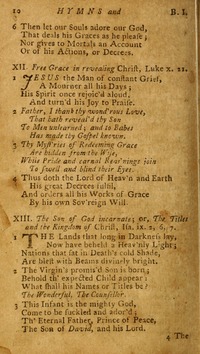 10 HYMNS and B. I.
6 Then let our Souls adore our God,
That deals his Graces as he please;
Nor gives to Mortals an Account
Or of his Actions, or Decrees.
XII. Free Grace in revealing Christ, Luke x. 21.
1 JESUS the Man of constant Grief,
A Mourner all his Days;
His Spirit once rejoic'd aloud,
And turn'd his Joy to Praise.
2 Father, I thank thy wond'rous Love,
That hath reveal'd thy Son
To Men unlearned; and to Babes
Has made thy Gospel known.
3 Thy Myst'ries of Redeeming Grace
Are hidden from the Wise,
While Pride and carnal Reas'nings join
To swell and blind their Eyes.
4 Thus doth the Lord of Heav'n and Earth
His great Decrees fulfil,
And orders all his Works of Grace
By his own Sov'reign Will.
XIII. The Son of God incarnate; or, The Titles
and the Kingdom of Christ, Isa. ix. 2, 6, 7.
1 THE Lands that long in Darkness lay,
Now have beheld a Heav'nly Light;
Nations that sat in Death's cold Shade,
Are blest with Beams divinely bright.
2 The Virgin's promis'd Son is born,
Behold th' expected Child appear;
What shall his Names or Titles be?
The Wonderful, The Counsellor.
3 This Infant is the mighty God,
Come to be suckled and ador'd;
Th' Eternal Father, Prince of Peace,
The Son of David, and his Lord.
4 The